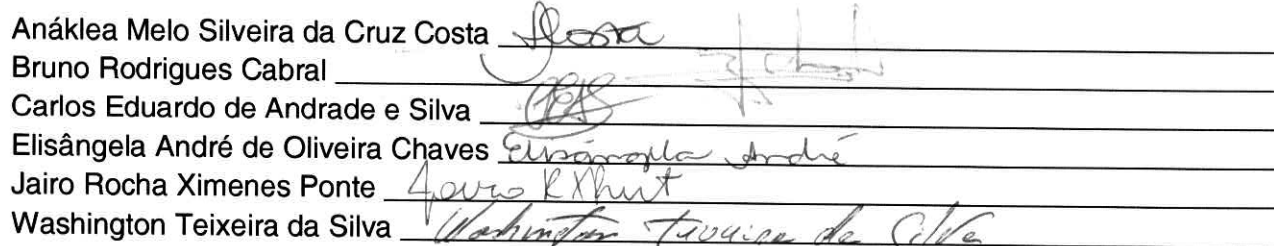 Anáklea Melo Silveira da Cruz Costa Costa
Bruno Rodrigues Cabral
Carlos Eduardo de Andrade e Silva
Elisângela André de Oliveira Chaves Elisângela André
Jairo Rocha Ximenes Ponte Jairo R
Washington Teixeira da Silva Washington Teixeira da Silva